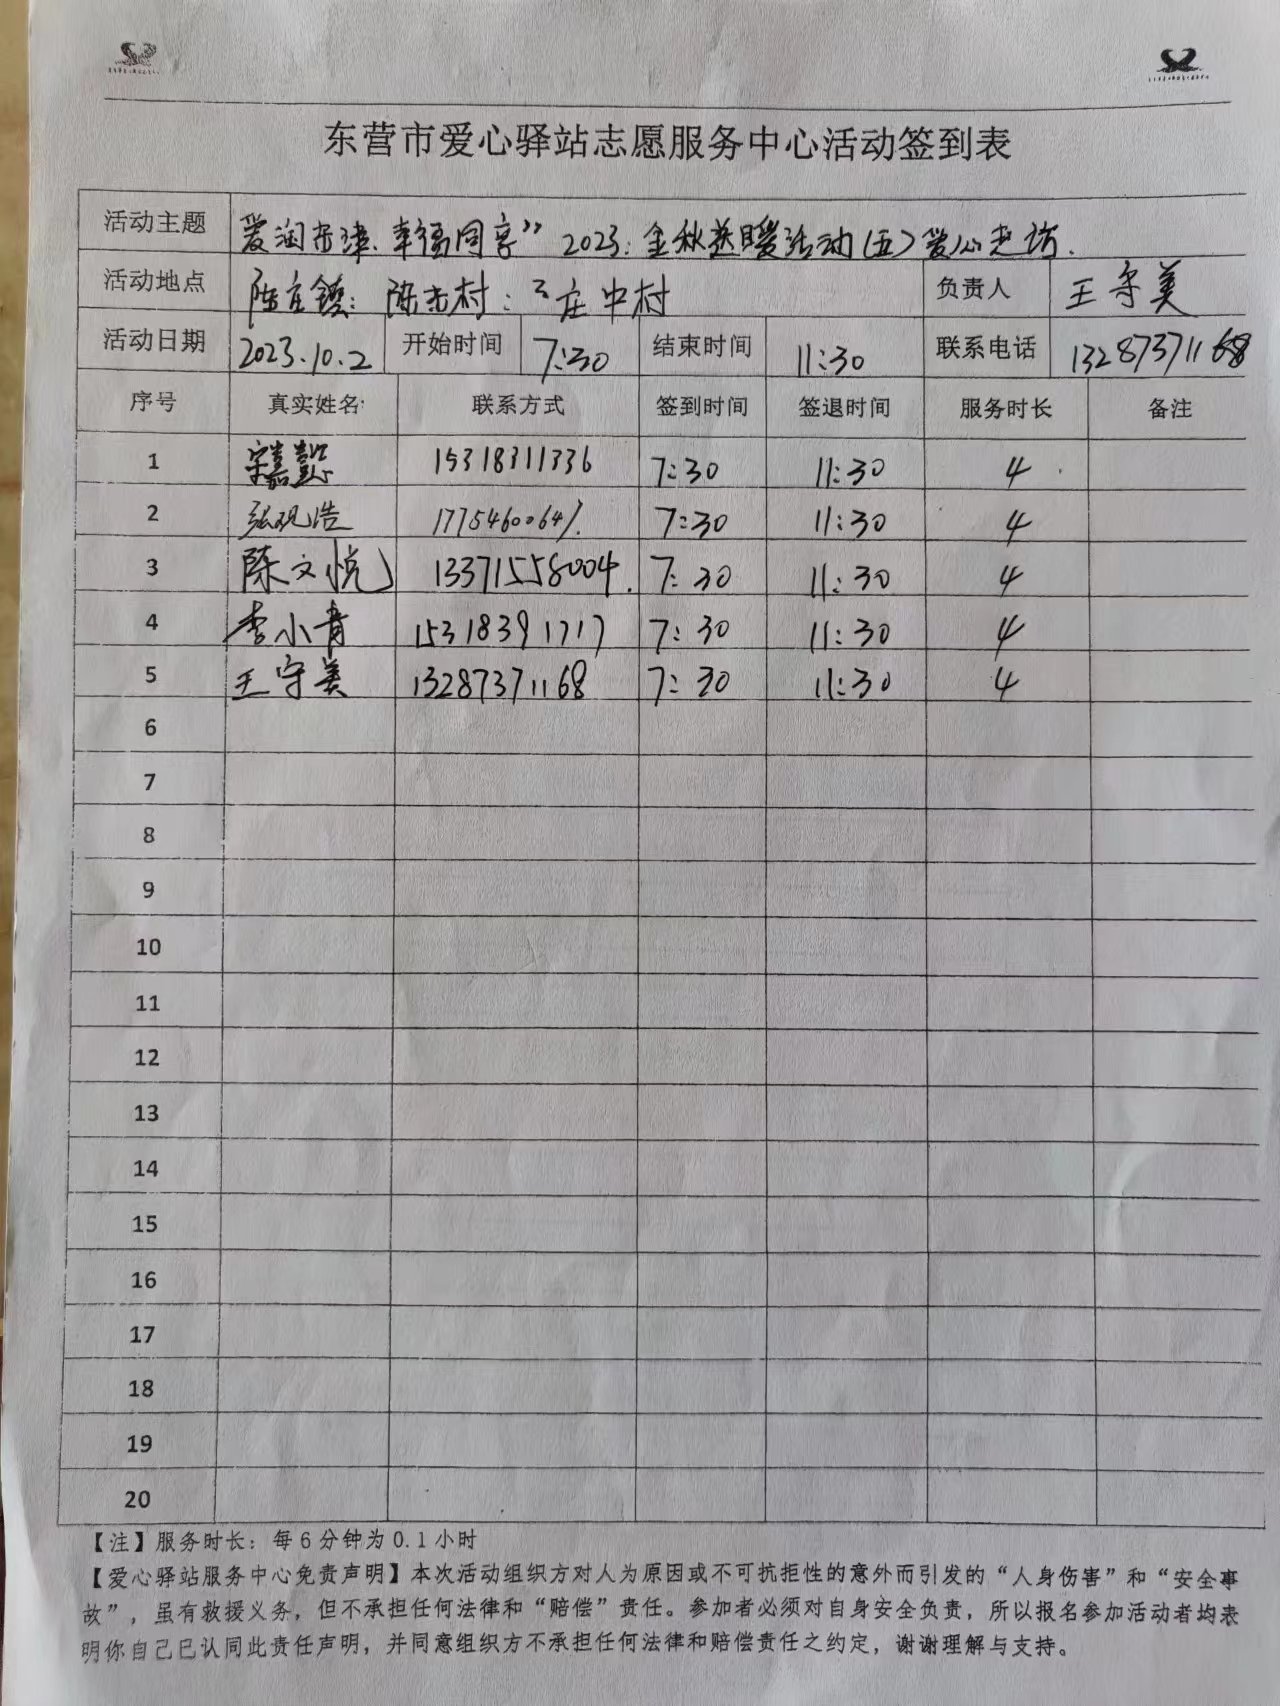 东营市爱心驿站志愿服务中心活动签到表
活动主题 爱润东津、幸福同享” 2023.金秋送暖活动(五)爱心走访.
活动地点 陈庄镇: 陈村: 庄中村 负责人 王守美
活动日期 2023.10.2 开始时间 7:30 结束时间 11:30 联系电话 13287371168
序号 真实姓名 联系方式 签到时间 签退时间 服务时长 备注
1 宋嘉懿 15318311336 7:30 11:30 4
2 张观浩 7:30 11:30 4
3 陈文悦 13371558004 7:30 11:30 4
4 李小青 15318391717 7:30 11:30 4
5 王守美 13287371168 7:30 11:30 4
6
7
8
9
10
11
12
13
14
15
16
17
18
19
20
【注】服务时长：每6分钟为0.1小时
【爱心驿站服务中心免责声明】本次活动组织方对人为原因或不可抗拒性的意外而引发的“人身伤害”和“安全事
故”，虽有救援义务，但不承担任何法律和“赔偿”责任。参加者必须对自身安全负责，所以报名参加活动者均表
明你自己已认同此责任声明，并同意组织方不承担任何法律和赔偿责任之约定，谢谢理解与支持。